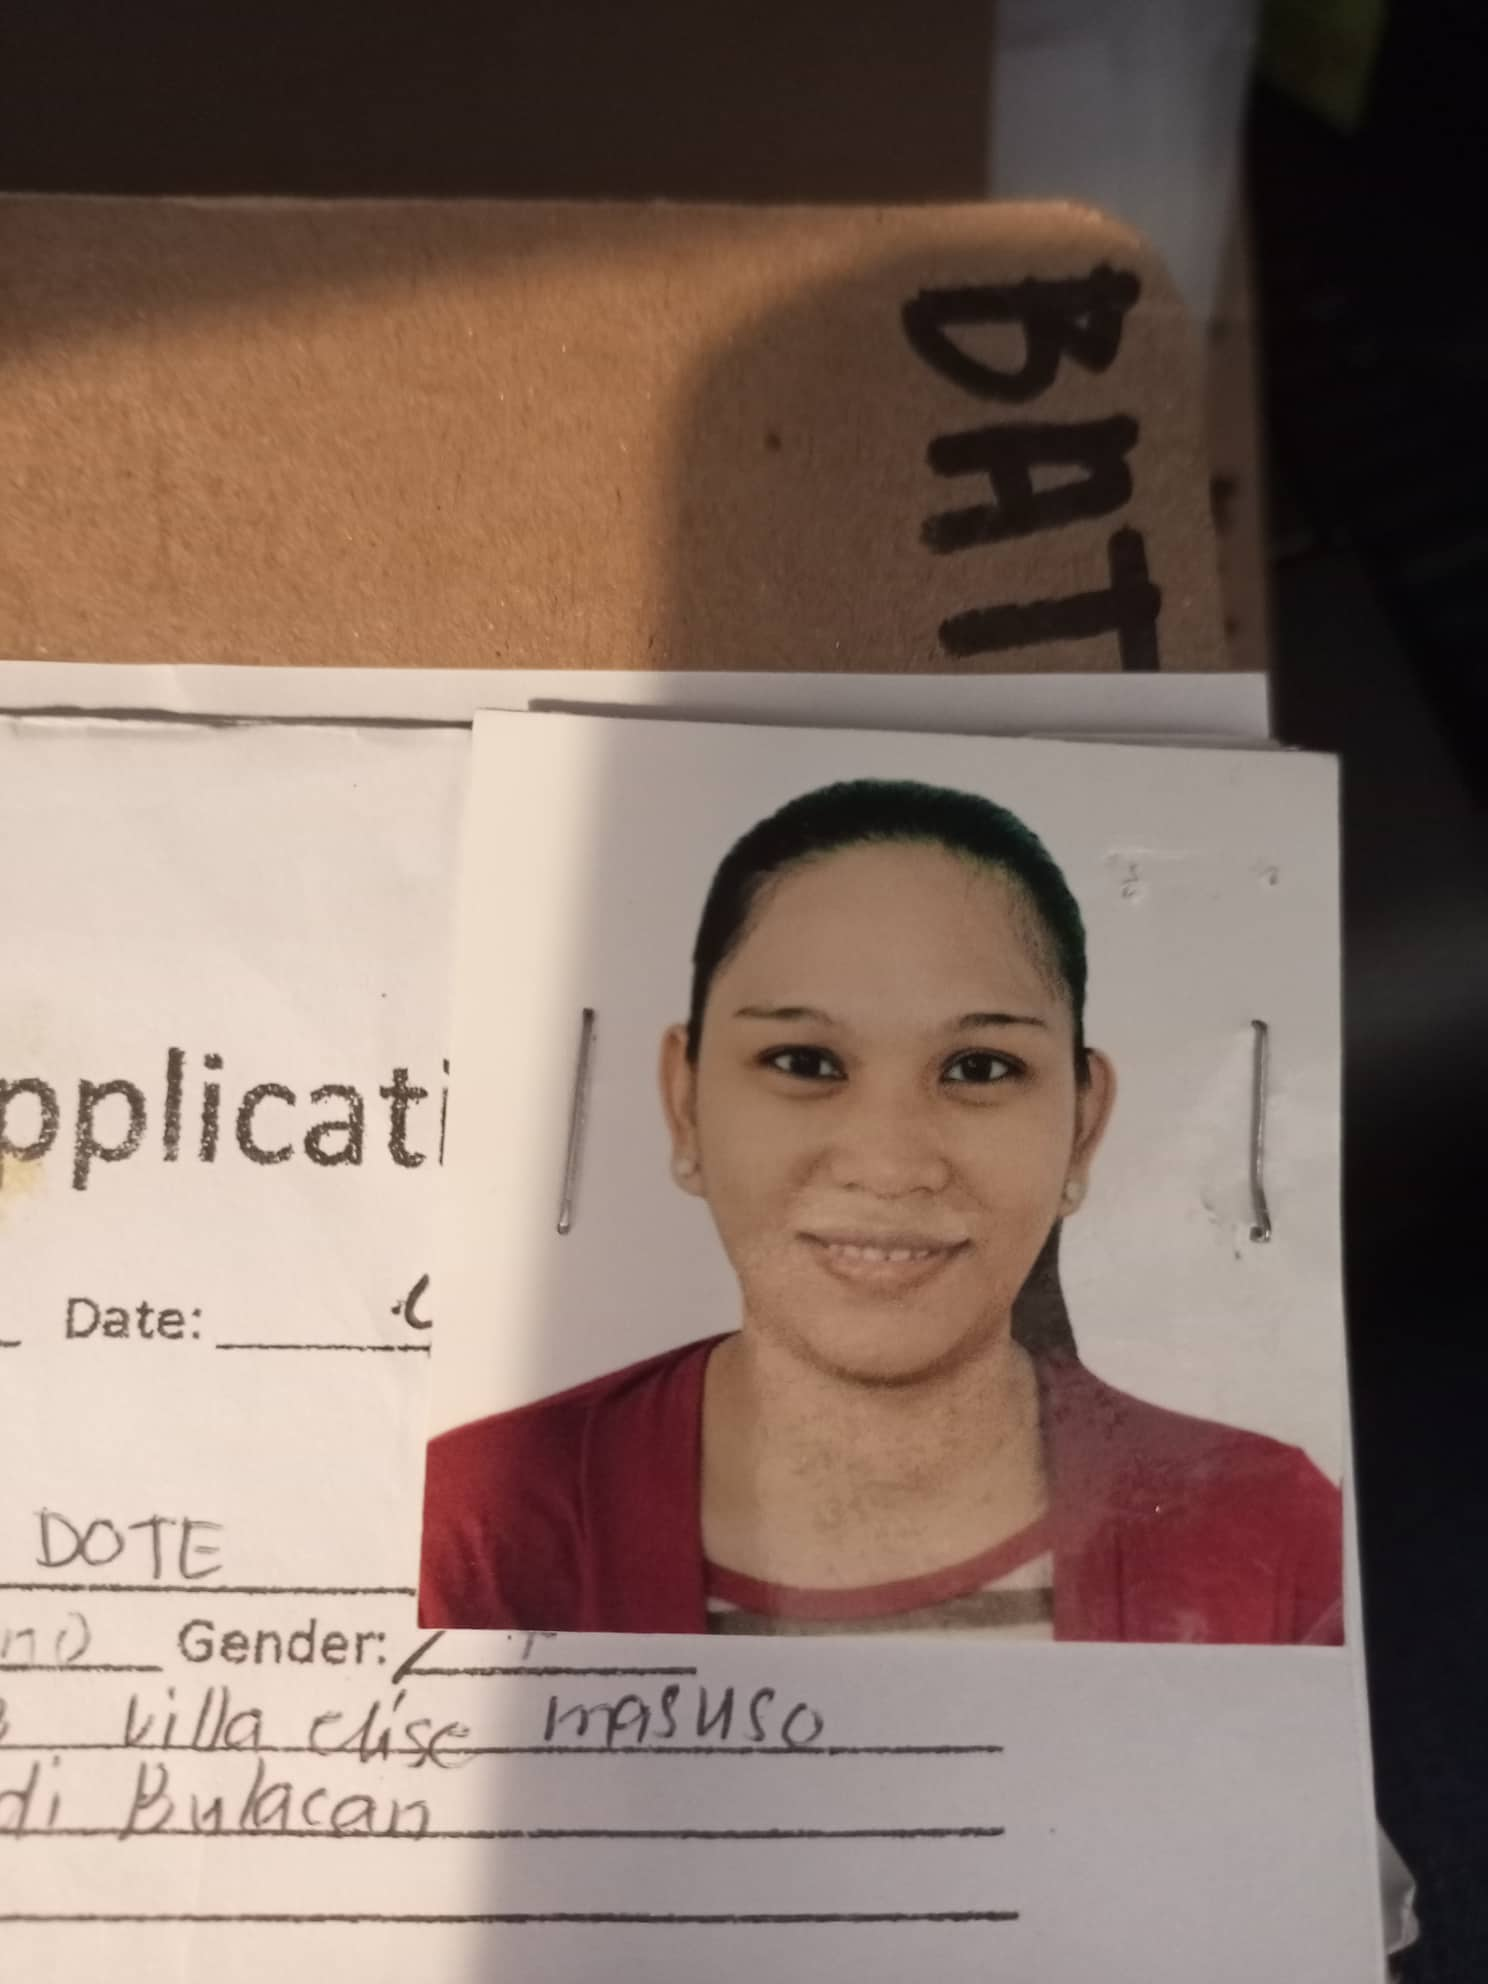 BAT
pplicati
Date:
DOTE
Gender:
Villa elise masuso
di Bulacan